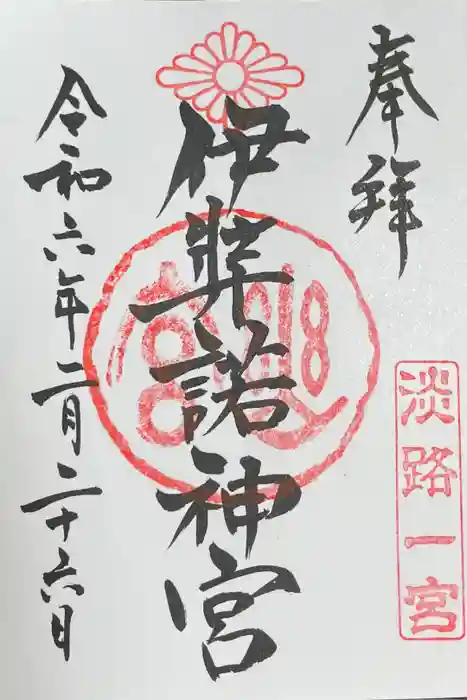 奉拝
淡路一宮
伊弉諾神宮
令和六年二月二十六日